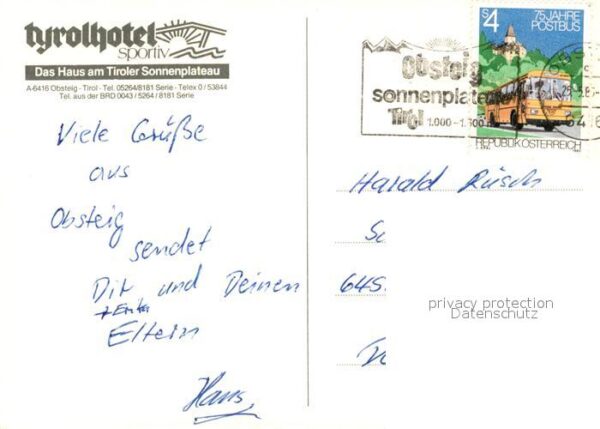 tyrolhotel
sportiv
Das Haus am Tiroler Sonnenplateau
A-6416 Obsteig - Tirol - Tel. 05264/8181 Serie - Telex 0 / 53844
Tel. aus der BRD 0043 / 5264 / 8181 Serie
Viele Grüße
aus
Obsteig
sendet
Dir und Deinen
Eltern
Hans
Obsteig
sonnenplateau
Tirol 1.000 -
S 4
75 JAHRE
POSTBUS
REPUBLIK ÖSTERREICH
Harald Rüsch
645
privacy protection
Datenschutz